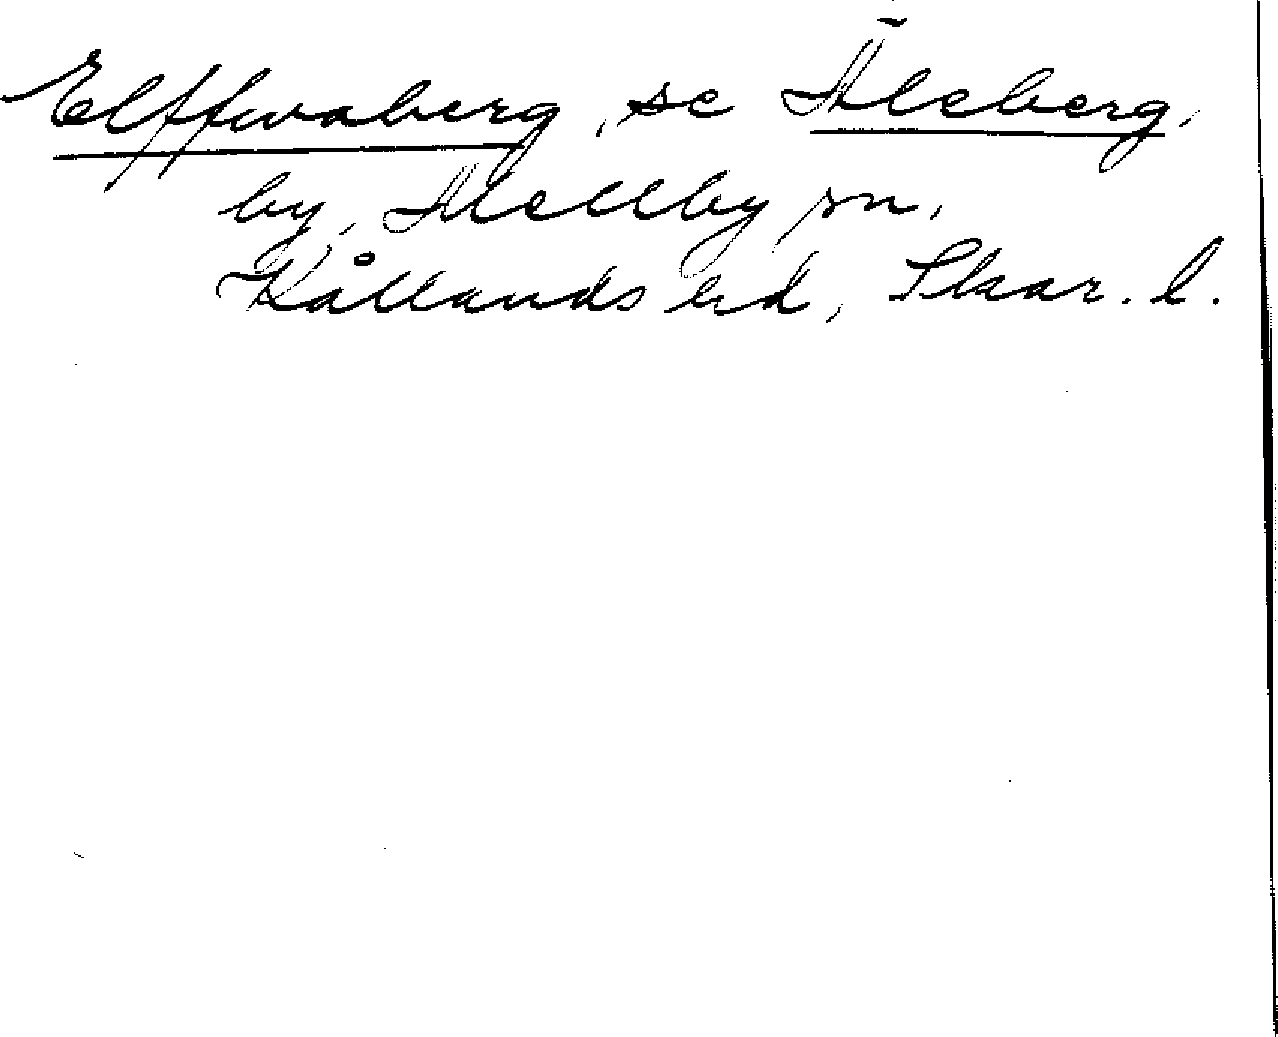 Elffwaberg, se Äleberg,
by, Mellby sn,
Kållands hd, Skar. l.